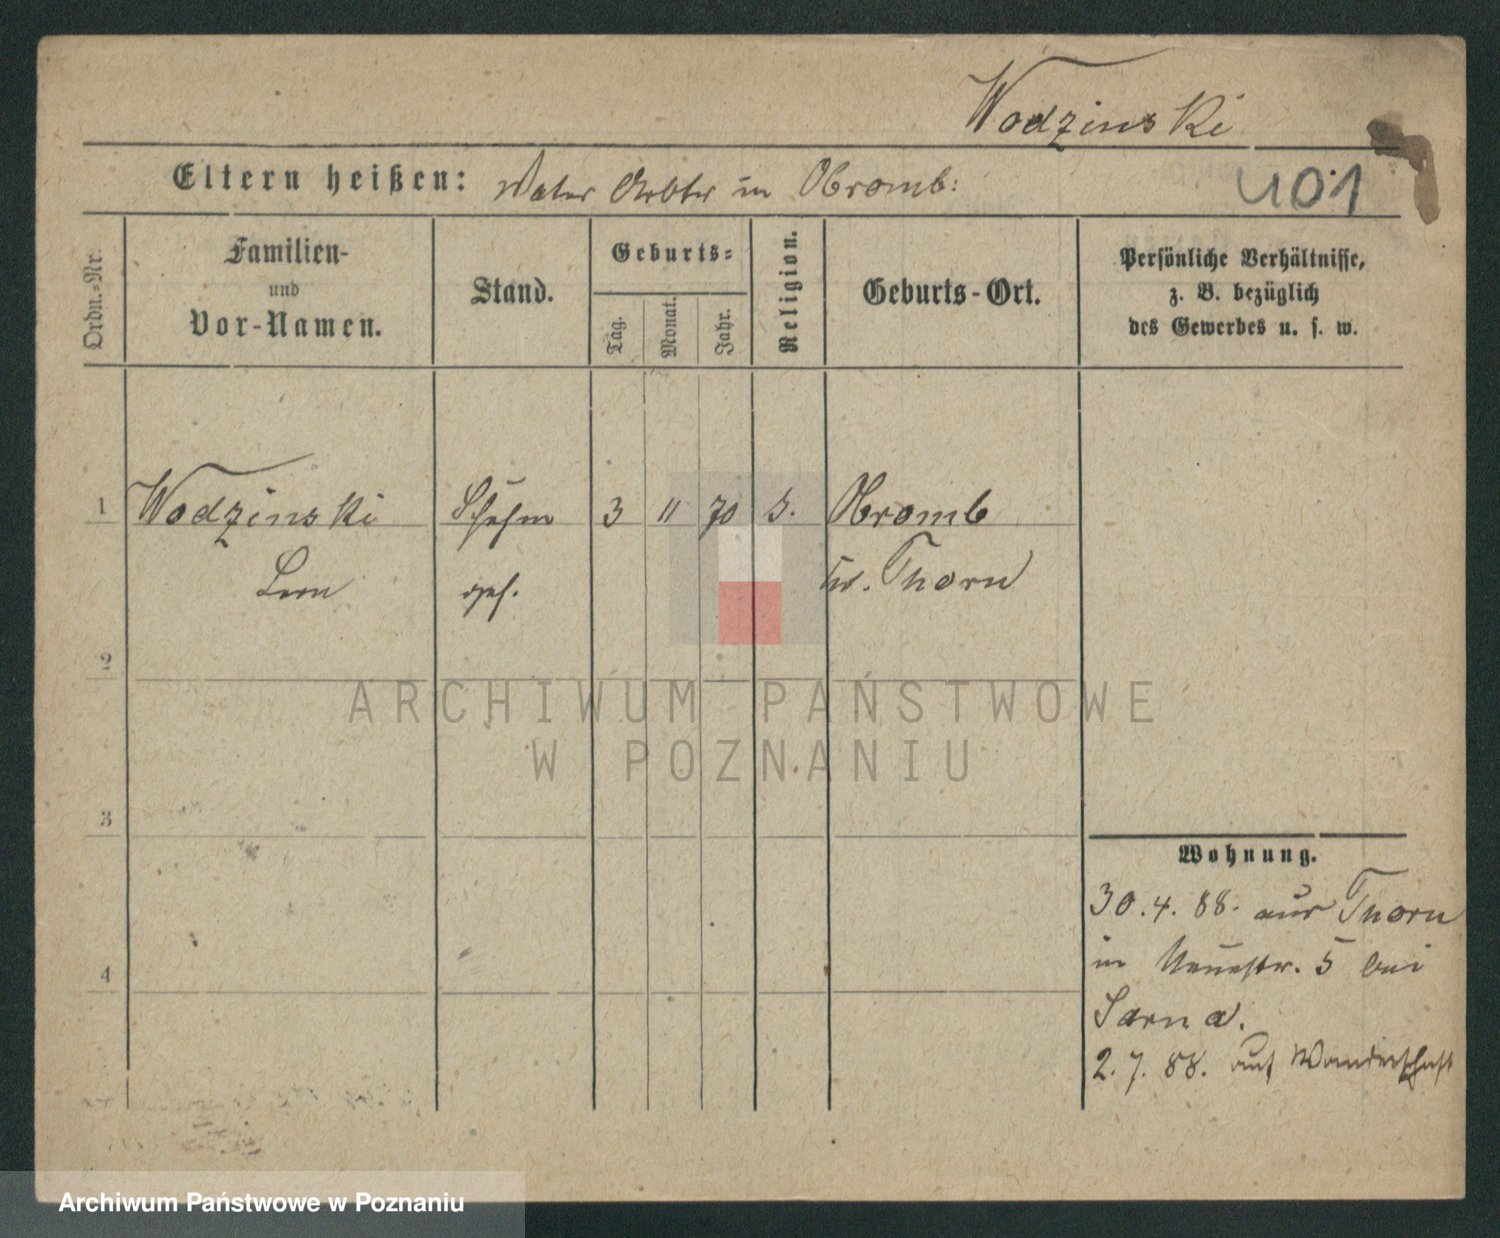 Wodzinski
Eltern heißen: Vater Arbtr in Obromb:
401
Ordn.-Nr.
Familien-
und
Vor-Namen.
Stand.
Geburts-
Tag.
Monat.
Jahr.
Religion.
Geburts-Ort.
Persönliche Verhältnisse,
z. B. bezüglich
des Gewerbes u. s. w.
1 Wodzinski 3 11 70 Obromb
Leon gef. Thorn
2
ARCHIWUM PAŃSTWOWE
W POZNANIU
3
Wohnung.
30.4.88. aus Thorn
in Neuestr. 5 bei
4
Sarna.
2.7.88. auf Wanderschaft
Archiwum Państwowe w Poznaniu